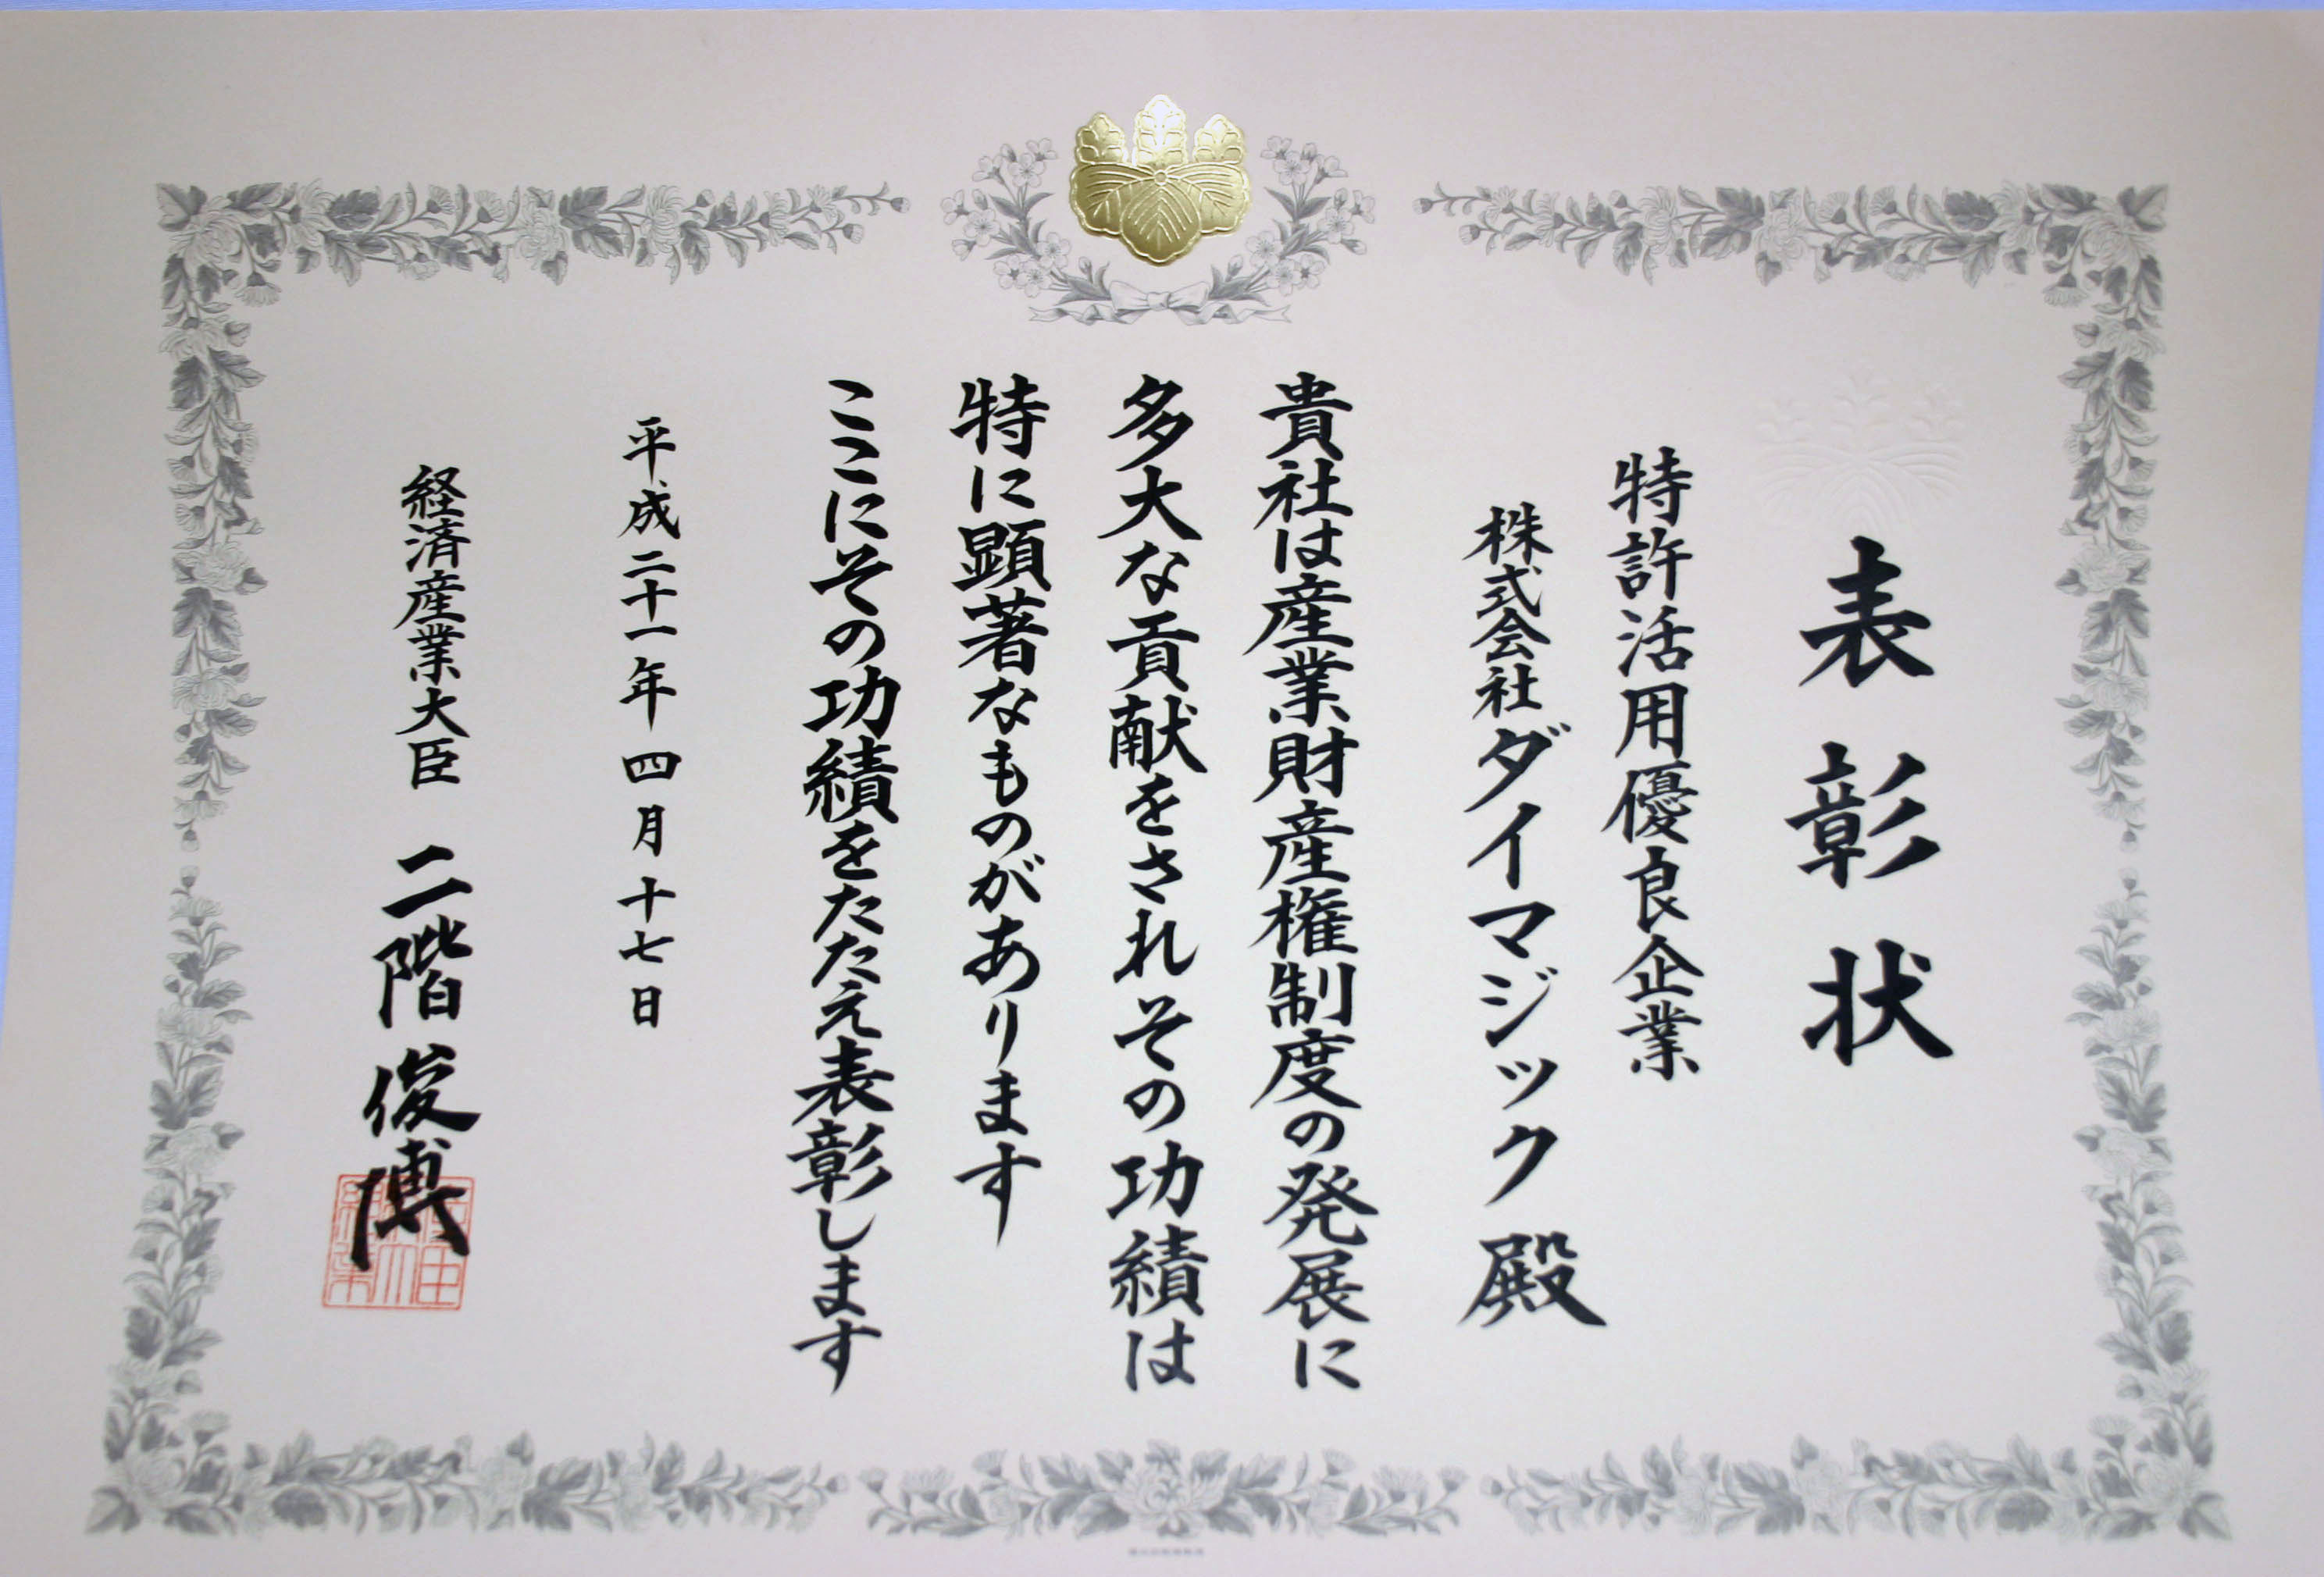 表彰状
特許活用優良企業
株式会社ダイマジック殿
貴社は産業財産権制度の発展に
多大な貢献をされその功績は
特に顕著なものがあります
ここにその功績をたたえ表彰します
平成二十一年四月十七日
経済産業大臣 二階俊博